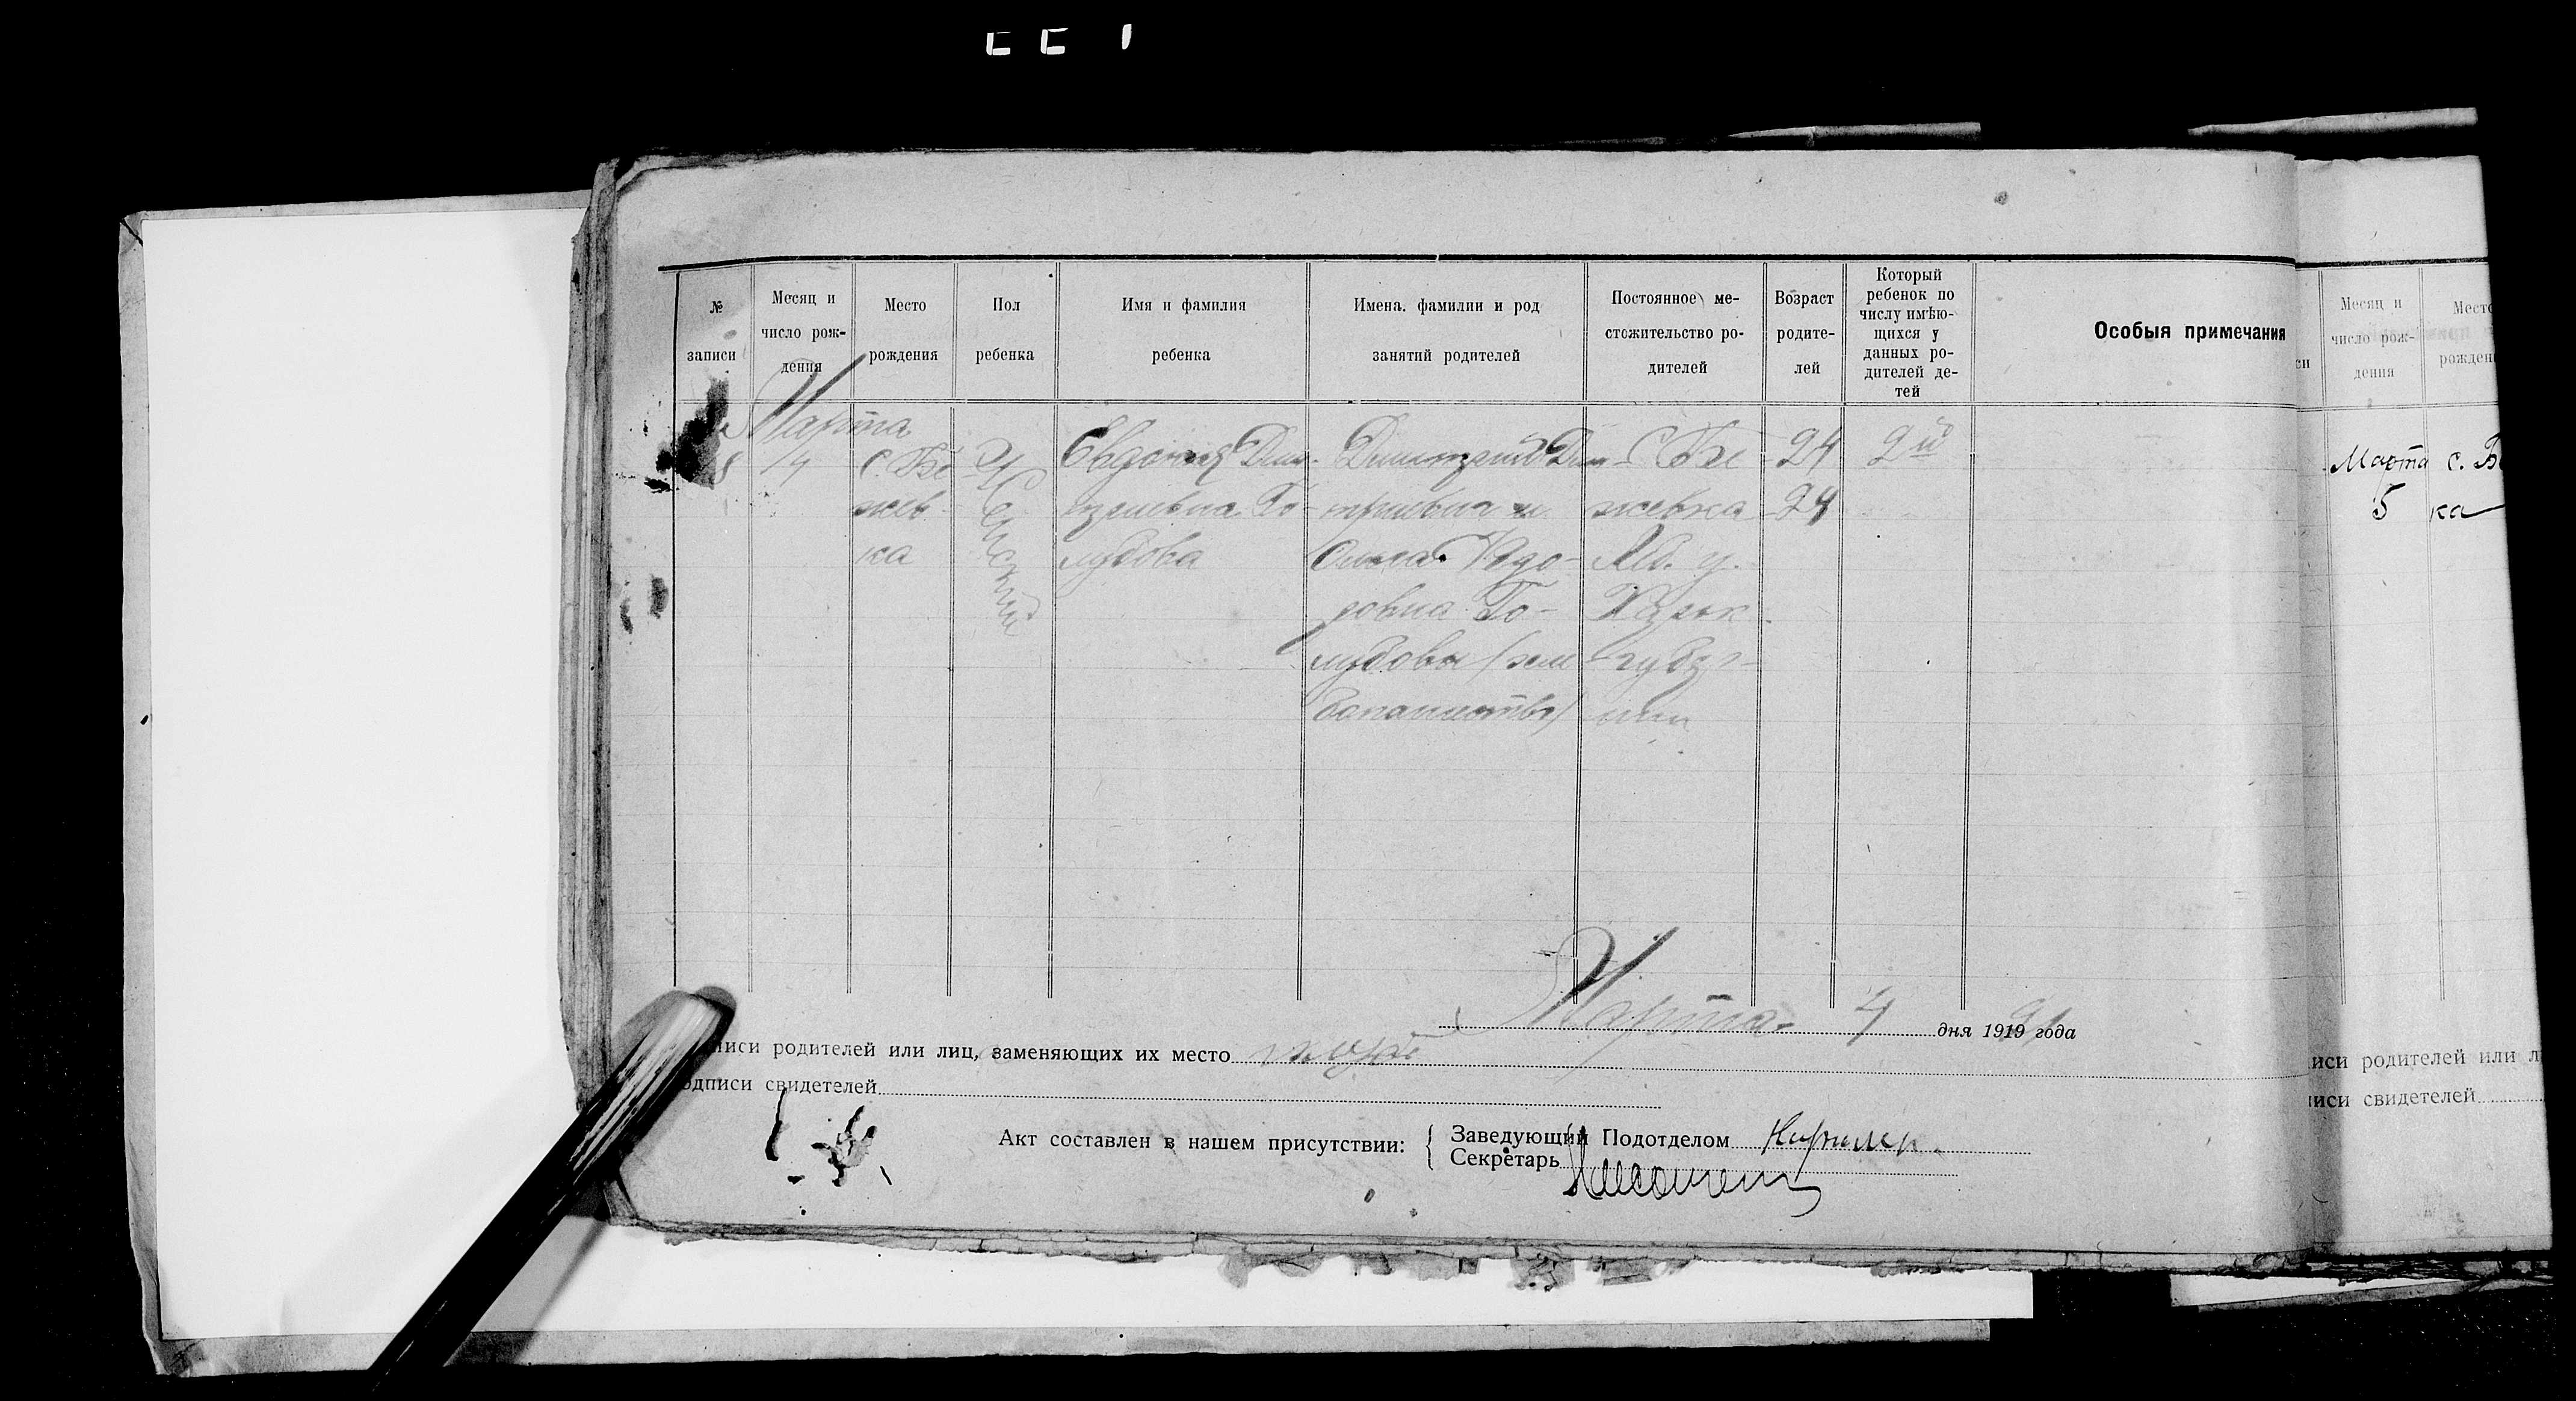 № записи
Месяц и число рож-дения
Место рождения
Пол ребенка
Имя и фамилия ребенка
Имена. фамилии и род занятий родителей
Постоянное ме-стожительство ро-дителей
Возраст родите-лей
Который ребенок по числу имѣю-щихся у данных ро-дителей де-тей
Особыя примечания
Марта
8
4
с. Бе
жев
ка
Женский
Евдокия Дми-
триевна Го-
лубова
Димитрий Дми-
триевич и
Го-
лубовы (хле
бопашество)
С. Бе
жевка
Харьк.
губер-
нии
24
24
2й
Марта 4 дня 1919 года
писи родителей или лиц, заменяющих их место
одписи свидетелей
Акт составлен в нашем присутствии:
Заведующий Подотделом
Секретарь
си
Месяц и число рож-дения
Место рожден
Марта
5
с. Б
ка
иси родителей или л
иси свидетелей